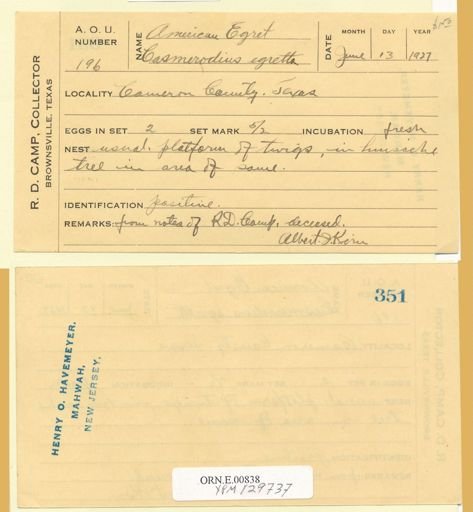 R. D. CAMP, COLLECTOR
BROWNSVILLE, TEXAS
A. O. U.
NUMBER
196
NAME American Egret
Casmerodius egretta
DATE
MONTH DAY YEAR
June 13 1927
LOCALITY Cameron County, Texas
EGGS IN SET 2 SET MARK 5/2 INCUBATION fresh
NEST usual platform of twigs, in huisache
tree in area of same.
IDENTIFICATION positive.
REMARKS: from notes of R.D. Camp, deceased.
Albert J. Kirn
351
HENRY O. HAVEMEYER.
MAHWAH,
NEW JERSEY.
ORN.E.00838
YPM 129737